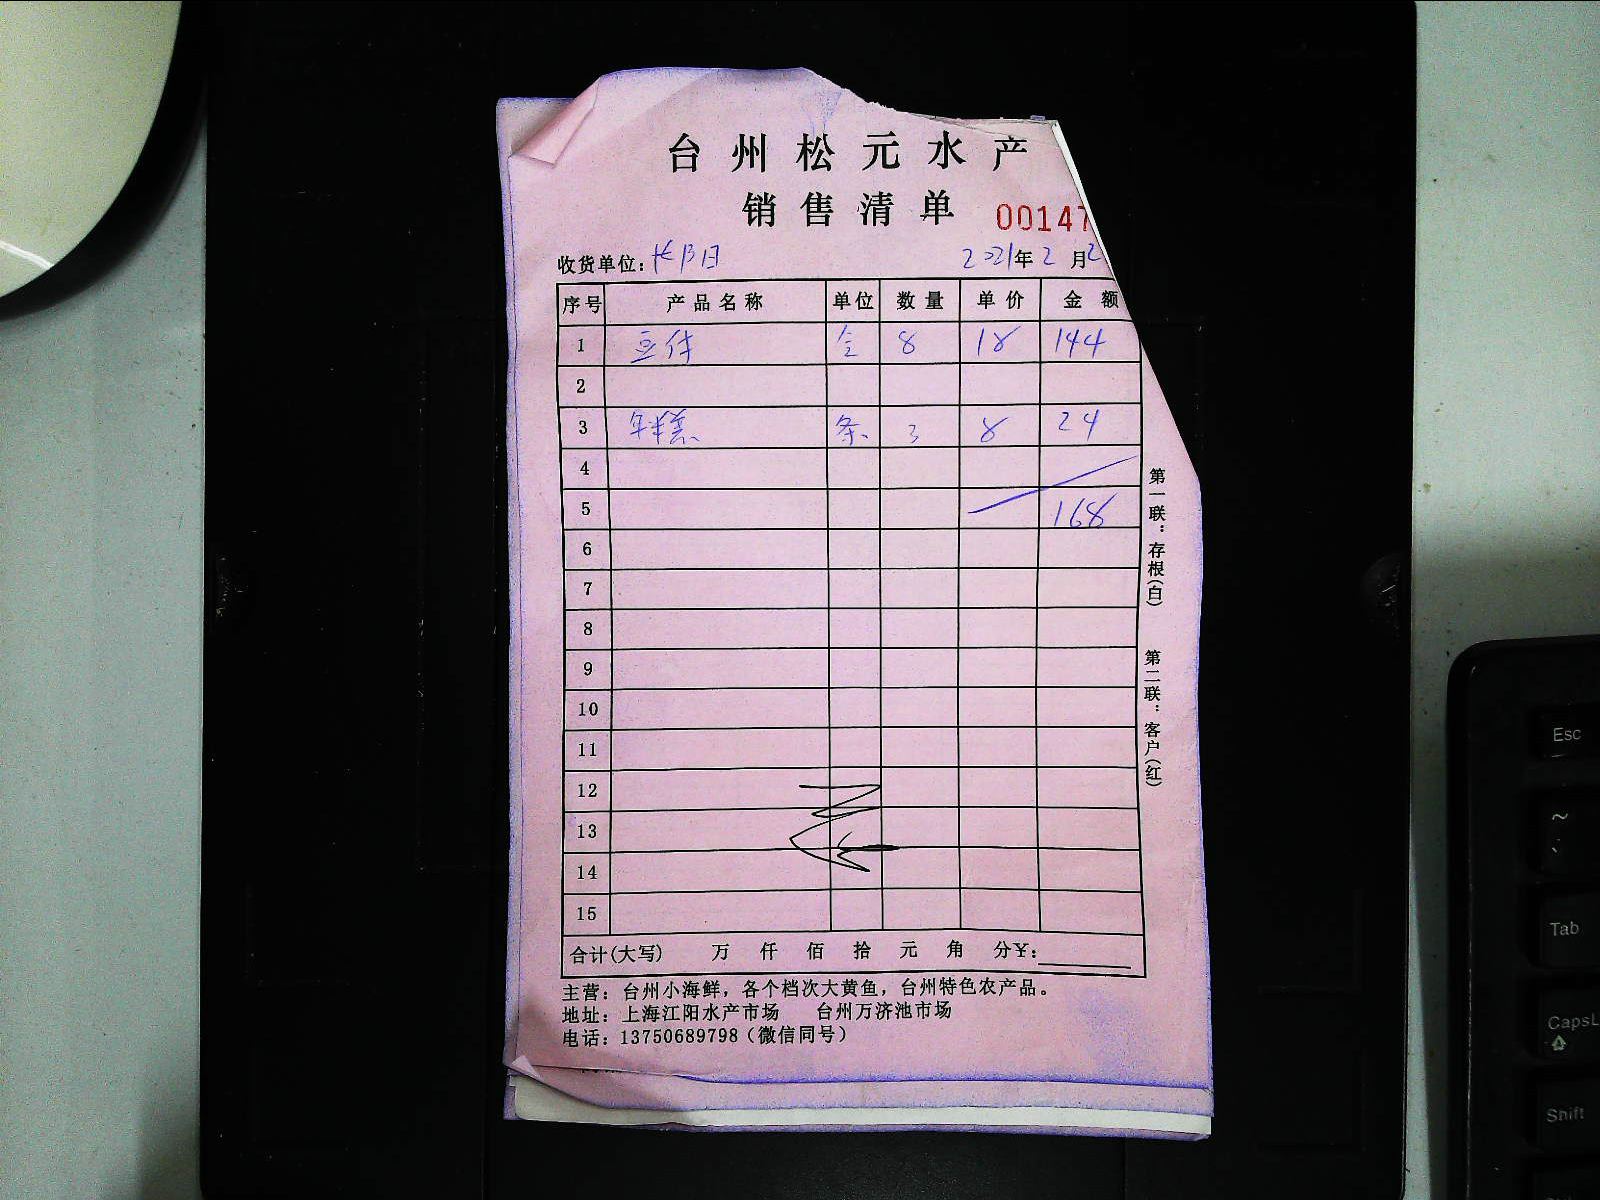 台州松元水产
销售清单
00147
收货单位: 2021年2月2
序号 产品名称 单位 数量 单价 金额
1 8 18 144
2
3 年糕 条 3 8 24
4
5 168
6
7
8
9
10
11
12
13
14
15
合计(大写) 万 仟 佰 拾 元 角 分¥:
主营：台州小海鲜，各个档次大黄鱼，台州特色农产品。
地址：上海江阳水产市场 台州万济池市场
电话：13750689798（微信同号）
第一联：存根(白)
第二联：客户(红)
Esc
~
`
Tab
CapsL
Shift